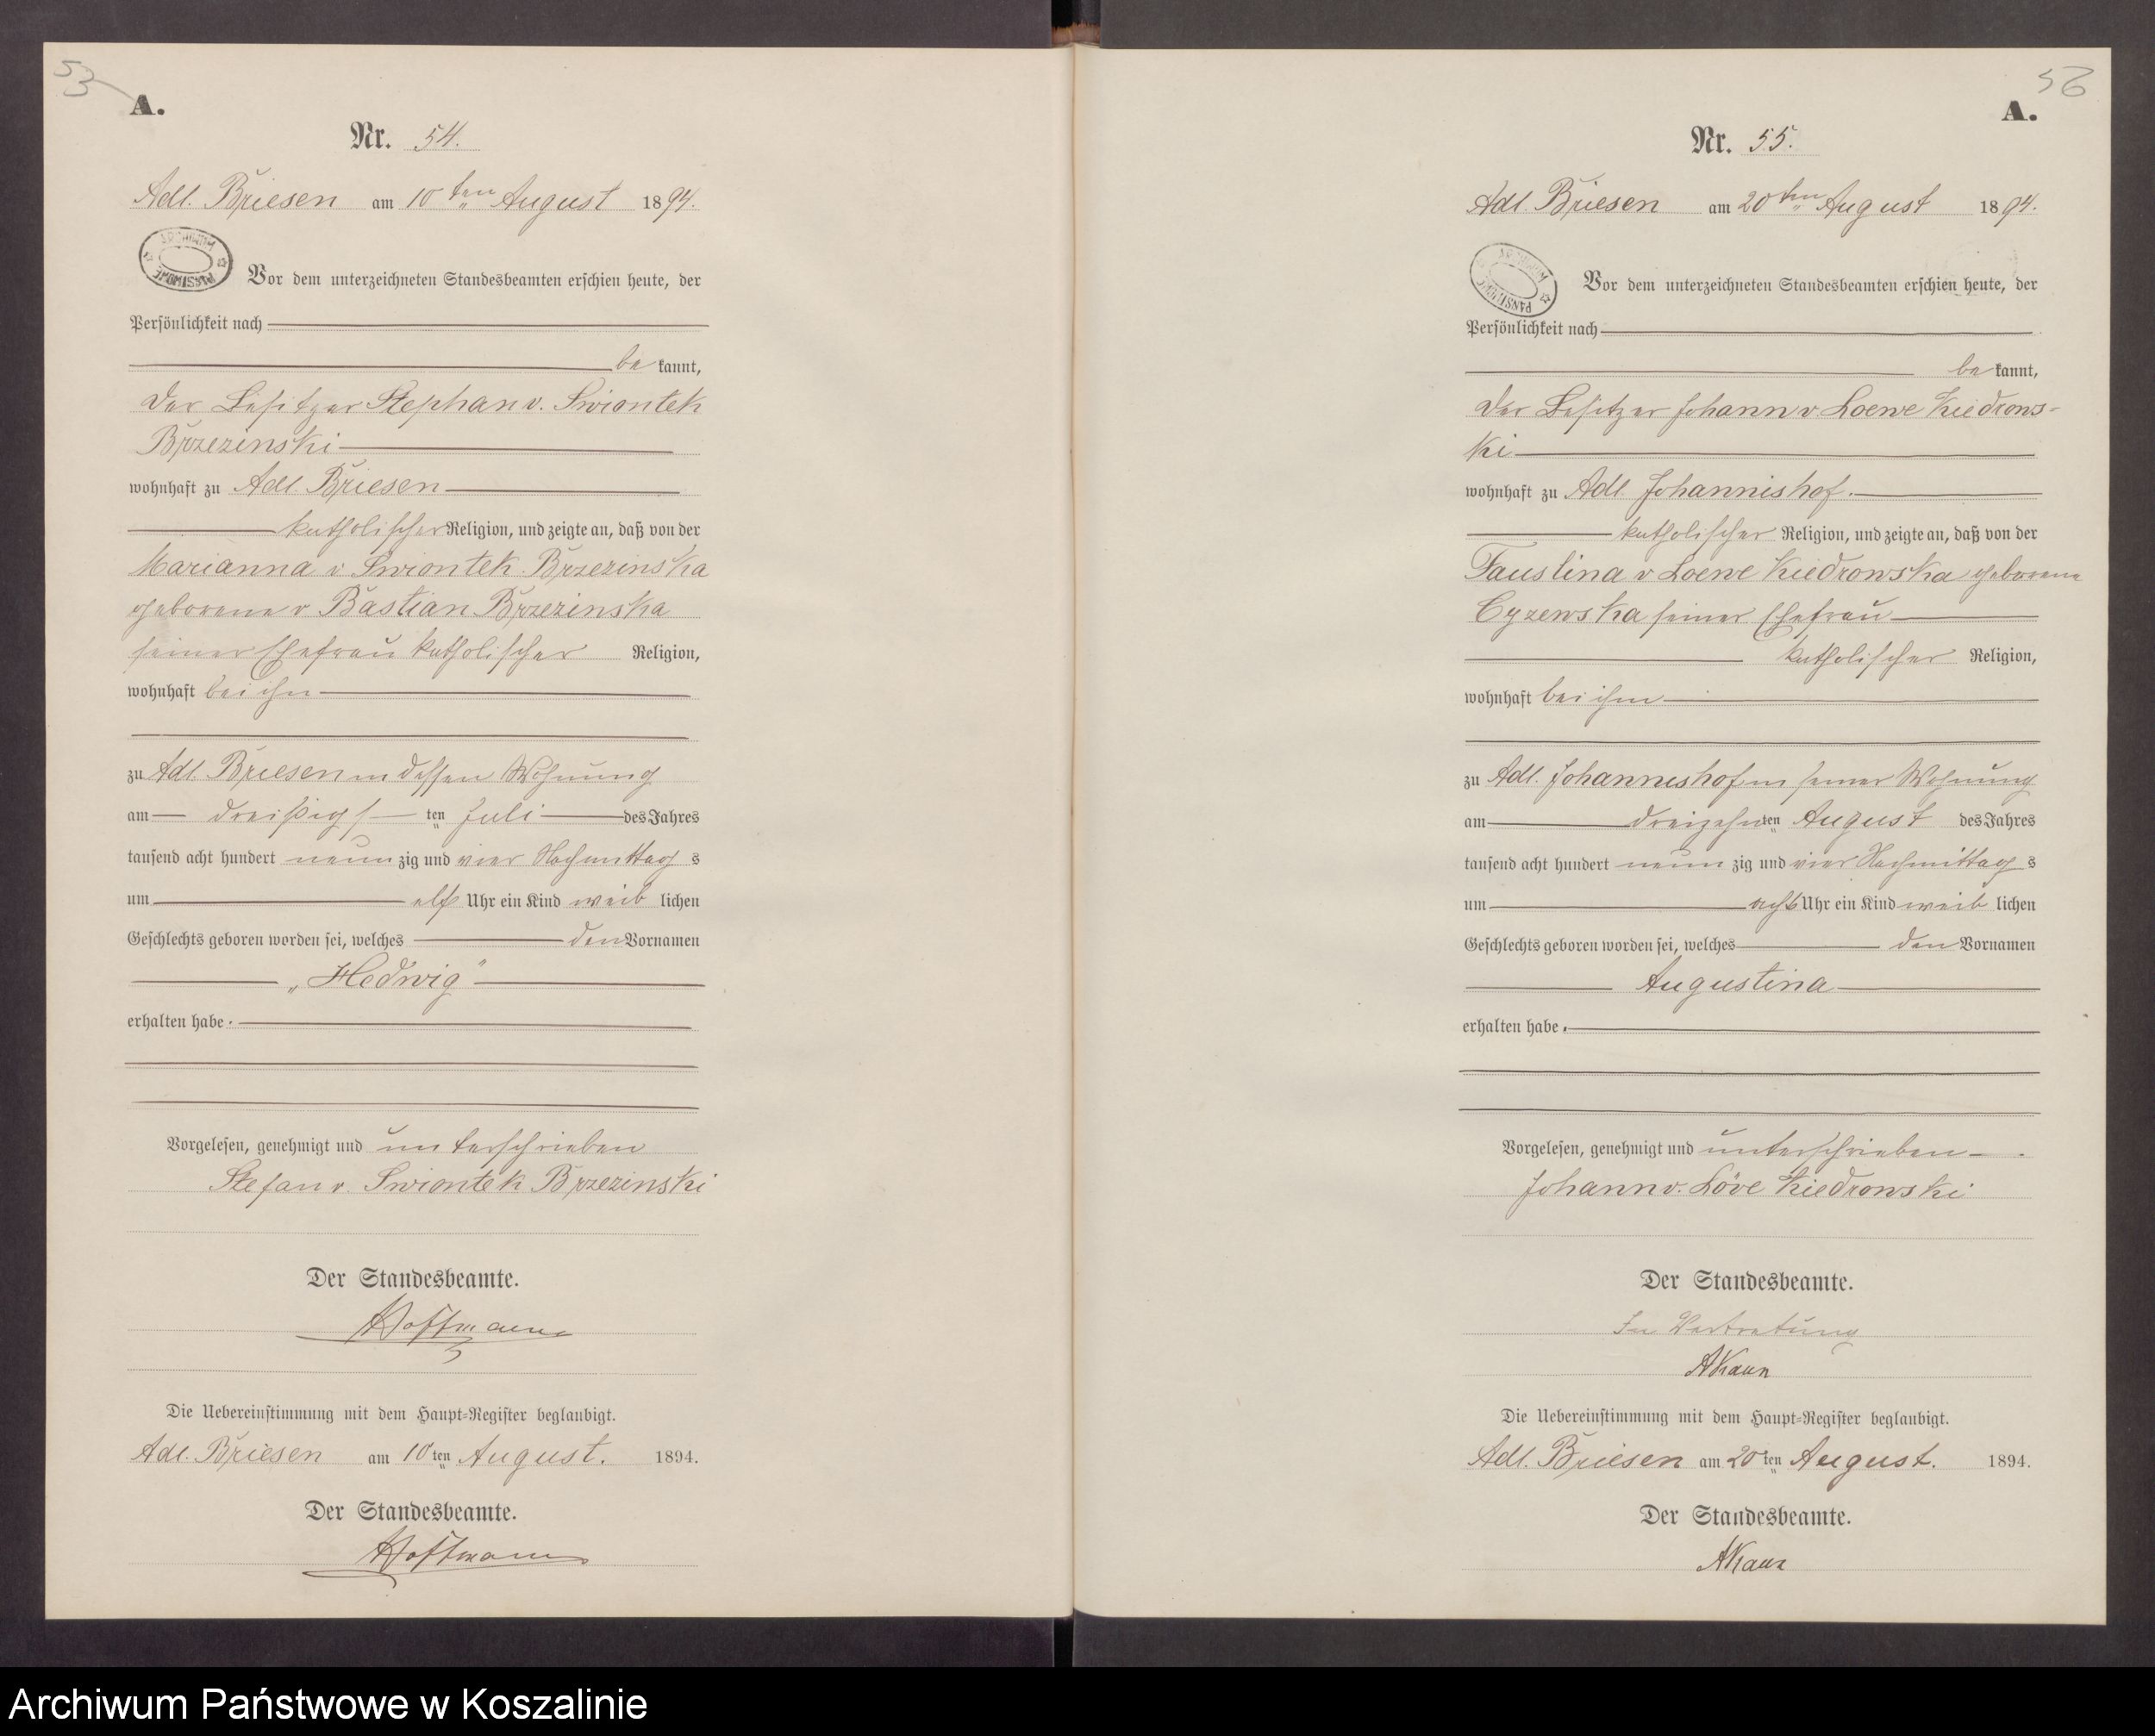 53
A.
Nr. 54.
Adl. Briesen am 10ten August 1894.
ARCHIWUM PAŃSTWOWE
Vor dem unterzeichneten Standesbeamten erschien heute, der
Persönlichkeit nach
be kannt,
der Besitzer Stephan v. Swiontek
Brzezinski
wohnhaft zu Adl. Briesen
katholischer Religion, und zeigte an, daß von der
Marianna v Swiontek Brzezinska
geborene v Bastian Brzezinska
seiner Ehefrau katholischer Religion,
wohnhaft bei ihn
zu Adl. Briesen in dessen Wohnung
am dreißigs ten Juli des Jahres
tausend acht hundert neun zig und vier Nachmittag s
um elf Uhr ein Kind weib lichen
Geschlechts geboren worden sei, welches den Vornamen
„Hedwig"
erhalten habe.
Vorgelesen, genehmigt und unterschrieben
Stefan v. Swiontek Brzezinski
Der Standesbeamte.
Hoffmann
Die Uebereinstimmung mit dem Haupt-Register beglaubigt.
Adl. Briesen am 10ten August. 1894.
Der Standesbeamte.
Hoffmann
56
A.
Nr. 55.
Adl. Briesen am 20ten August 1894.
ARCHIWUM PAŃSTWOWE
Vor dem unterzeichneten Standesbeamten erschien heute, der
Persönlichkeit nach
be kannt,
der Besitzer Johann v. Loewe Kiedrows-
ki
wohnhaft zu Adl. Johannishof.
katholischer Religion, und zeigte an, daß von der
Faustina v Loewe Kiedrowska geborene
Cyzewska seiner Ehefrau
katholischer Religion,
wohnhaft bei ihm
zu Adl. Johannishof in seiner Wohnung
am dreizehn ten August des Jahres
tausend acht hundert neun zig und vier Nachmittag s
um acht Uhr ein Kind weib lichen
Geschlechts geboren worden sei, welches den Vornamen
Augustina
erhalten habe.
Vorgelesen, genehmigt und unterschrieben
Johann v. Löve Kiedrowski
Der Standesbeamte.
In Vertretung
AKaun
Die Uebereinstimmung mit dem Haupt-Register beglaubigt.
Adl. Briesen am 20ten August. 1894.
Der Standesbeamte.
AKaun
Archiwum Państwowe w Koszalinie